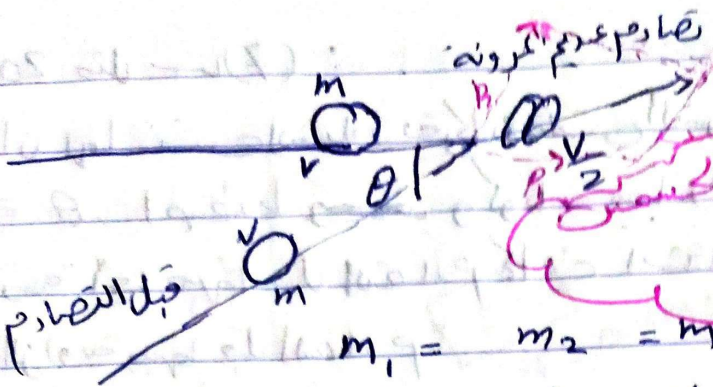 تصادم عديم المرونة
m
v
θ
P₁
v/2
v
m
قبل التصادم
m₁ = m₂ = m